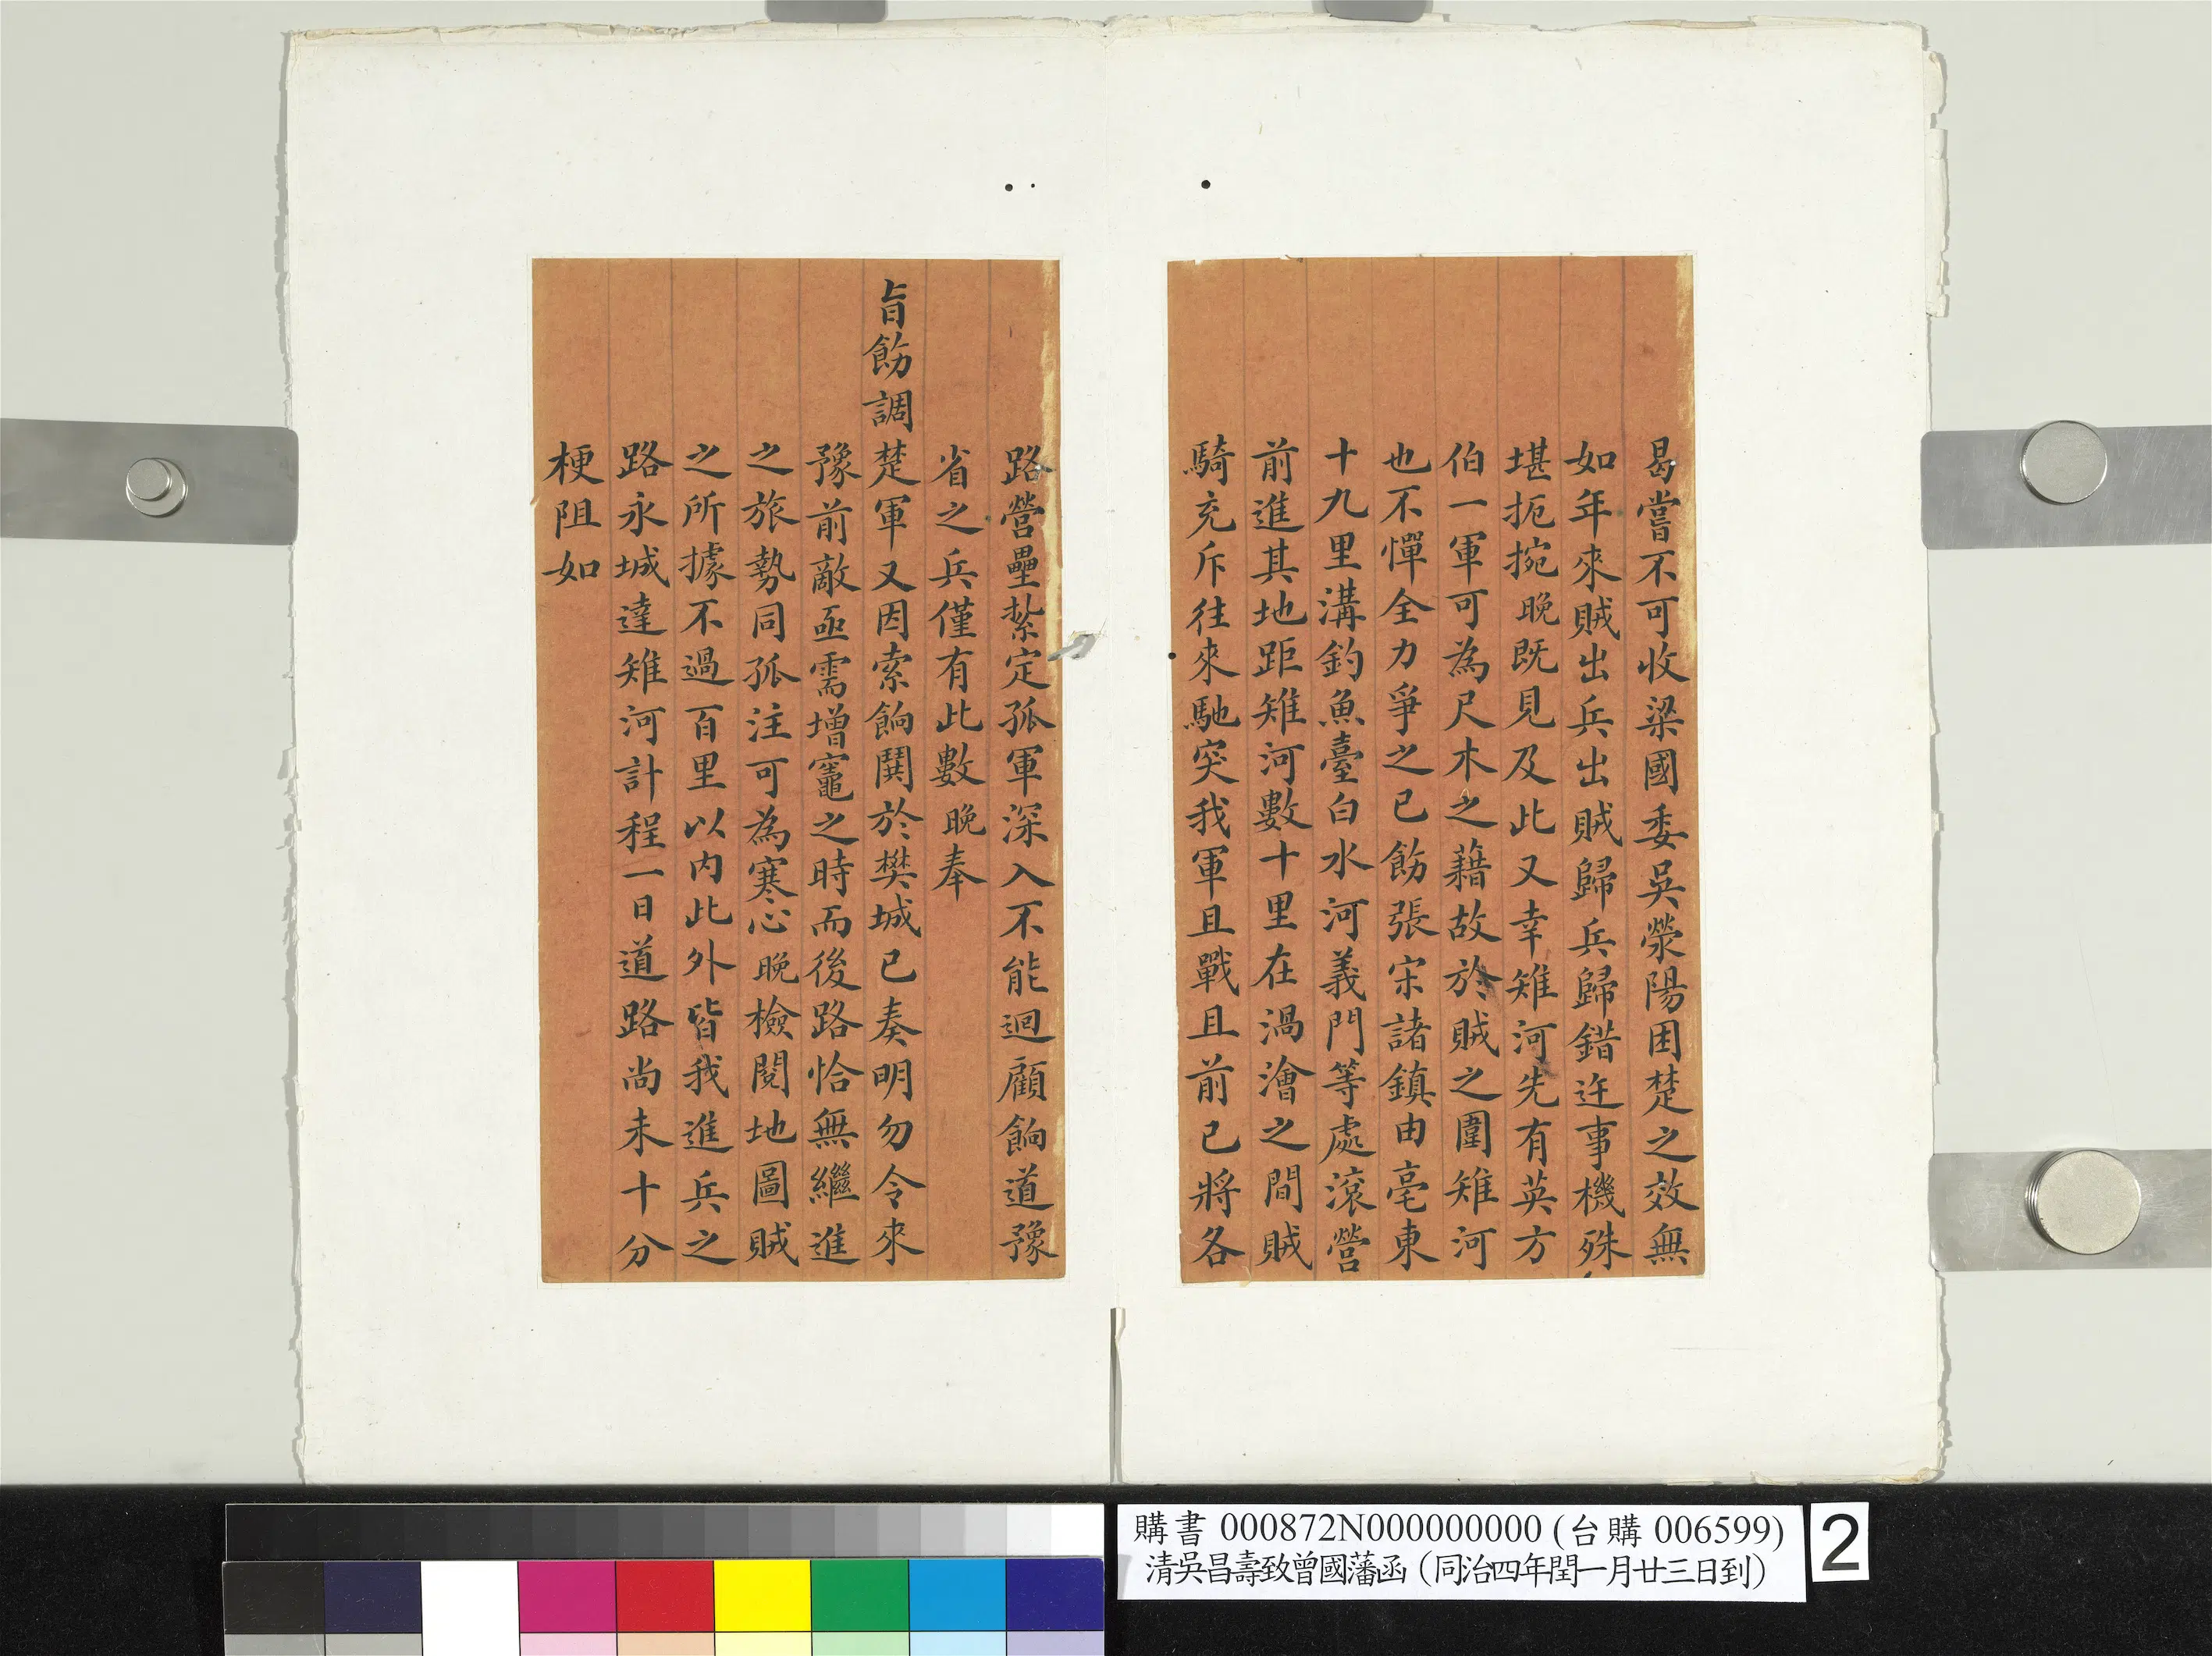 曷嘗不可收梁國委吳滎陽困楚之效無
如年來賊出兵出賊歸兵歸錯迕事機殊
堪扼捥晚既見及此又幸雉河先有英方
伯一軍可為尺木之藉故於賊之圍雉河
也不憚全力爭之已飭張宋諸鎮由亳東
十九里溝釣魚臺白水河義門等處滾營
前進其地距雉河數十里在渦澮之間賊
騎充斥往來馳突我軍且戰且前已將各
路營壘紮定孤軍深入不能迴顧餉道豫
省之兵僅有此數晚奉
旨飭調楚軍又因索餉鬨於樊城已奏明勿令來
豫前敵亟需增竈之時而後路恰無繼進
之旅勢同孤注可為寒心晚檢閱地圖賊
之所據不過百里以內此外皆我進兵之
路永城達雉河計程一日道路尚未十分
梗阻如
購書 000872N000000000 (台購 006599)
清吳昌壽致曾國藩函 (同治四年閏一月廿三日到)
2